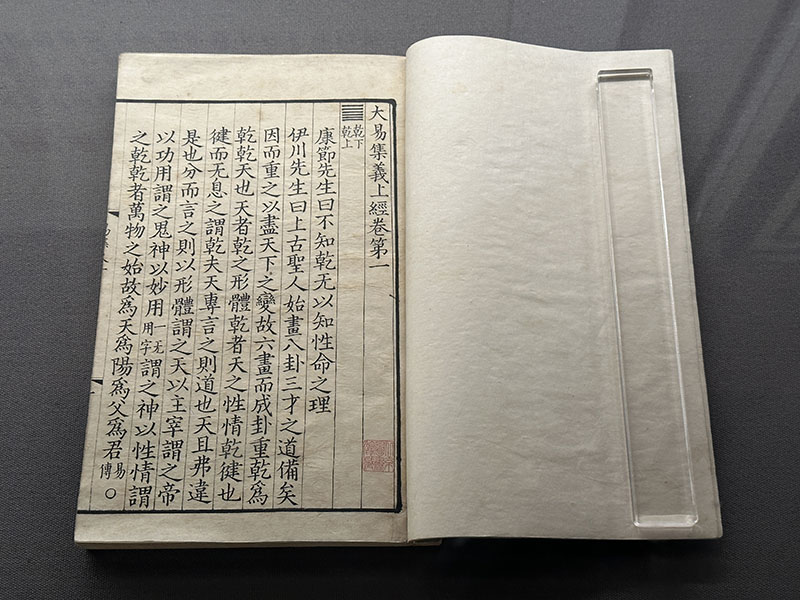 大易集義上經卷第一
䷀乾下乾上
康節先生曰不知乾无以知性命之理
伊川先生曰上古聖人始畫八卦三才之道備矣
因而重之以盡天下之變故六畫而成卦重乾爲
乾乾天也天者乾之形體乾者天之性情乾徤也
徤而无息之謂乾夫天專言之則道也天且弗違
是也分而言之則以形體謂之天以主宰謂之帝
以功用謂之鬼神以妙用一无用字謂之神以性情謂
之乾乾者萬物之始故爲天爲陽爲父爲君易傳○